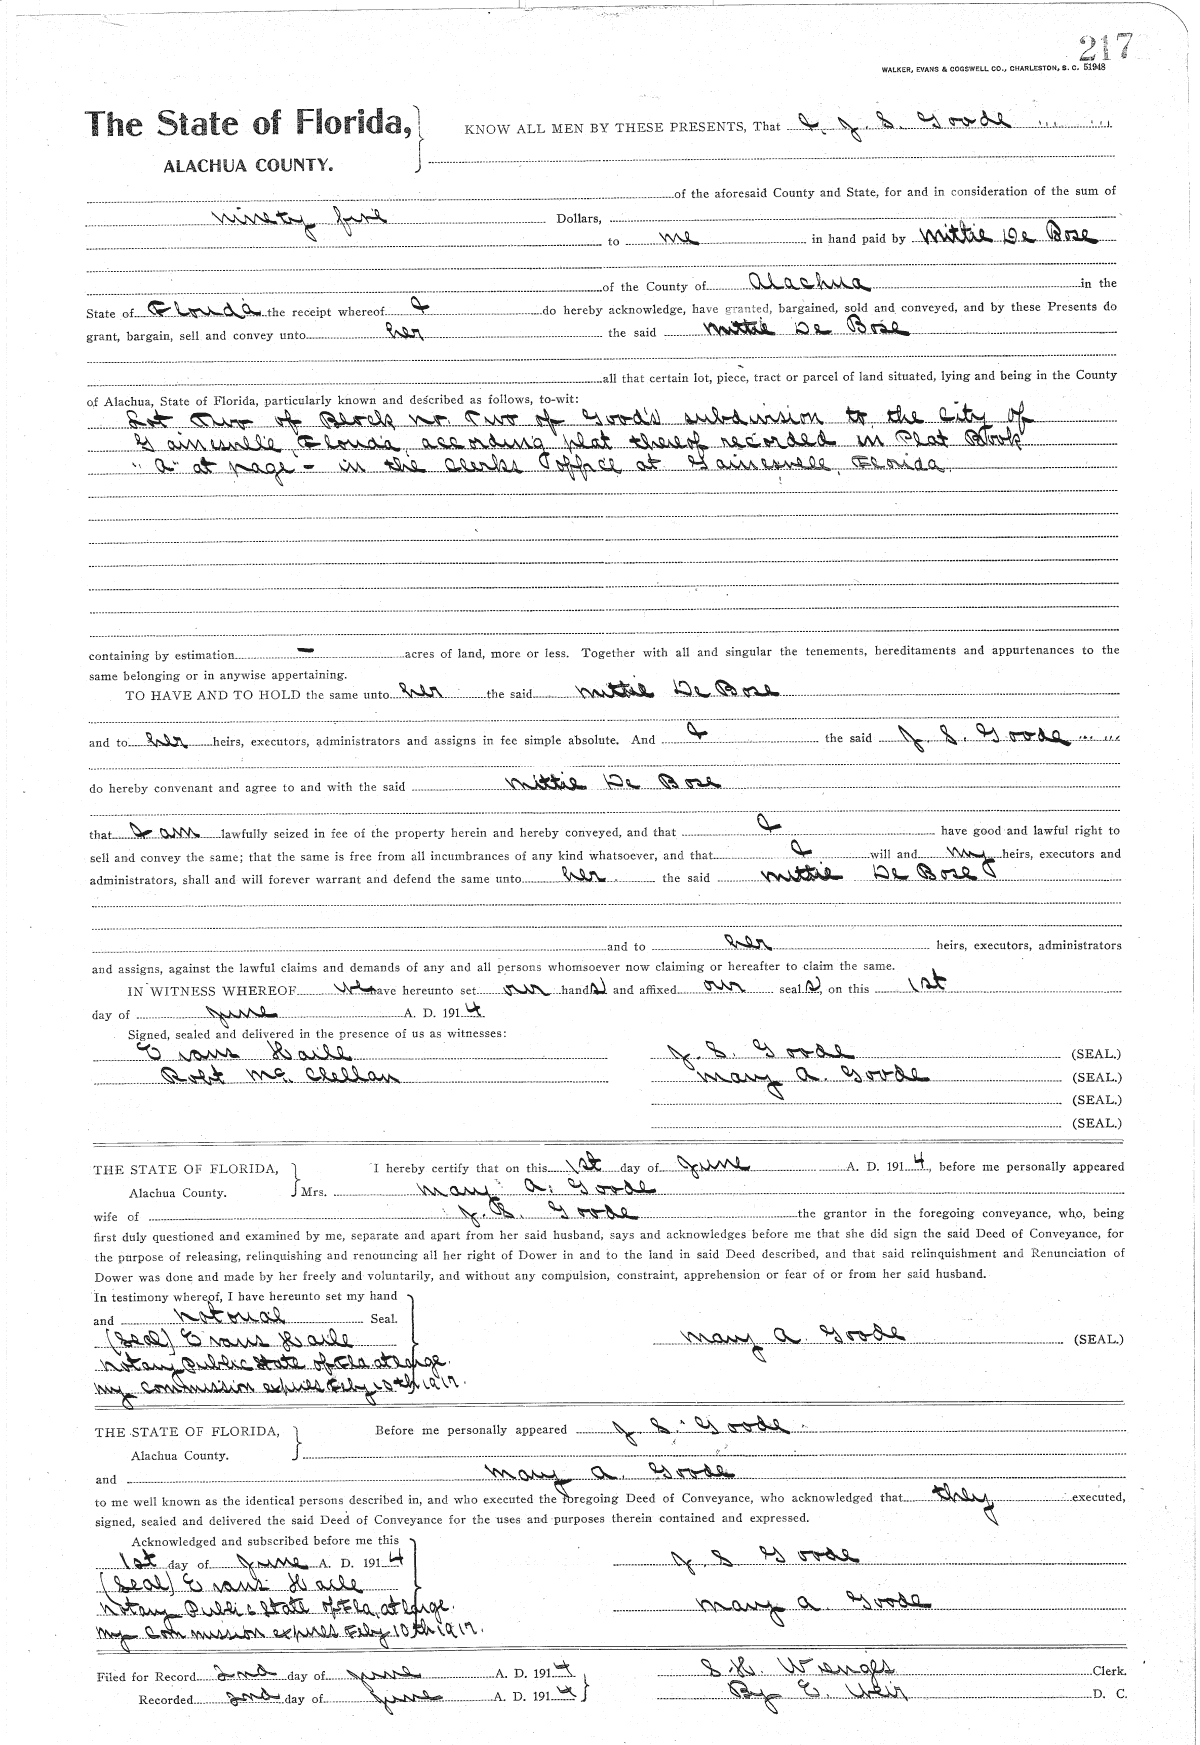 217
WALKER, EVANS & COGSWELL CO., CHARLESTON, S. C. 51948
The State of Florida,
ALACHUA COUNTY.
KNOW ALL MEN BY THESE PRESENTS, That I, J. S. Goode
of the aforesaid County and State, for and in consideration of the sum of
ninety five Dollars,
to me in hand paid by Mittie De Bose
of the County of Alachua in the
State of Florida the receipt whereof I do hereby acknowledge, have granted, bargained, sold and conveyed, and by these Presents do
grant, bargain, sell and convey unto her the said Mittie De Bose
all that certain lot, piece, tract or parcel of land situated, lying and being in the County
of Alachua, State of Florida, particularly known and described as follows, to-wit:
Lot Two of Block no. Two of Good's subdivision to the City of
Gainesville, Florida, according plat thereof recorded in Plat Book
"A" at page - in the Clerks office at Gainesville, Florida.
containing by estimation - acres of land, more or less. Together with all and singular the tenements, hereditaments and appurtenances to the
same belonging or in anywise appertaining.
TO HAVE AND TO HOLD the same unto her the said Mittie De Bose
and to her heirs, executors, administrators and assigns in fee simple absolute. And I the said J. S. Goode
do hereby convenant and agree to and with the said Mittie De Bose
that I am lawfully seized in fee of the property herein and hereby conveyed, and that I have good and lawful right to
sell and convey the same; that the same is free from all incumbrances of any kind whatsoever, and that I will and my heirs, executors and
administrators, shall and will forever warrant and defend the same unto her the said Mittie De Bose
and to her heirs, executors, administrators
and assigns, against the lawful claims and demands of any and all persons whomsoever now claiming or hereafter to claim the same.
IN WITNESS WHEREOF we have hereunto set our hands and affixed our seals, on this 1st
day of June A. D. 1914.
Signed, sealed and delivered in the presence of us as witnesses:
Evans Haile J. S. Goode (SEAL.)
Robt Mc. Clellan Mary A. Goode (SEAL.)
(SEAL.)
(SEAL.)
THE STATE OF FLORIDA, I hereby certify that on this 1st day of June A. D. 1914, before me personally appeared
Alachua County. Mrs. Mary A. Goode
wife of J. S. Goode the grantor in the foregoing conveyance, who, being
first duly questioned and examined by me, separate and apart from her said husband, says and acknowledges before me that she did sign the said Deed of Conveyance, for
the purpose of releasing, relinquishing and renouncing all her right of Dower in and to the land in said Deed described, and that said relinquishment and Renunciation of
Dower was done and made by her freely and voluntarily, and without any compulsion, constraint, apprehension or fear of or from her said husband.
In testimony whereof, I have hereunto set my hand
and Notorial Seal.
(Seal) Evans Haile Mary A. Goode (SEAL.)
Notary Public State of Fla at large.
My Commission expires Feby 10th 1917.
THE STATE OF FLORIDA, Before me personally appeared J S. Goode
Alachua County.
and Mary A. Goode
to me well known as the identical persons described in, and who executed the foregoing Deed of Conveyance, who acknowledged that they executed,
signed, sealed and delivered the said Deed of Conveyance for the uses and purposes therein contained and expressed.
Acknowledged and subscribed before me this
1st day of June A. D. 1914 J S Goode
(Seal) Evans Haile
Notary Public State of Fla, at large. Mary A. Goode
My Commission expires Feby 10th 1917.
Filed for Record 2nd day of June A. D. 1914 S. H. Wienges Clerk.
Recorded 2nd day of June A. D. 1914 By E. Weir D. C.